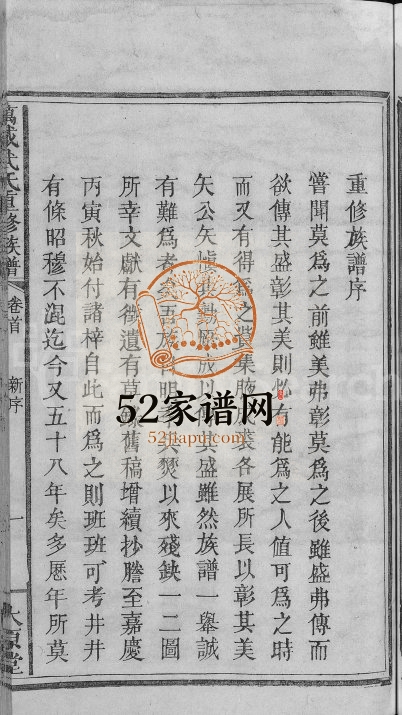 重修族譜序
嘗聞莫為之前雖美弗彰莫為之後雖盛弗傳而
欲傳其盛彰其美則有能為之人值可為之時
而又有得為之裝集腋成裘各展所長以彰其美
矢公矢慎成以其盛雖然族譜一舉誠
有難為者矣吾族自明末焚以來殘缺一二圖
所幸文獻有徵遺有草舊稿增續抄謄至嘉慶
丙寅秋始付諸梓自此而為之則班班可考井井
有條昭穆不混迄今又五十八年矣多歷年所莫
萬載武氏重修族譜 卷首 新序 一 太原堂
52家谱网
52jiapu.com